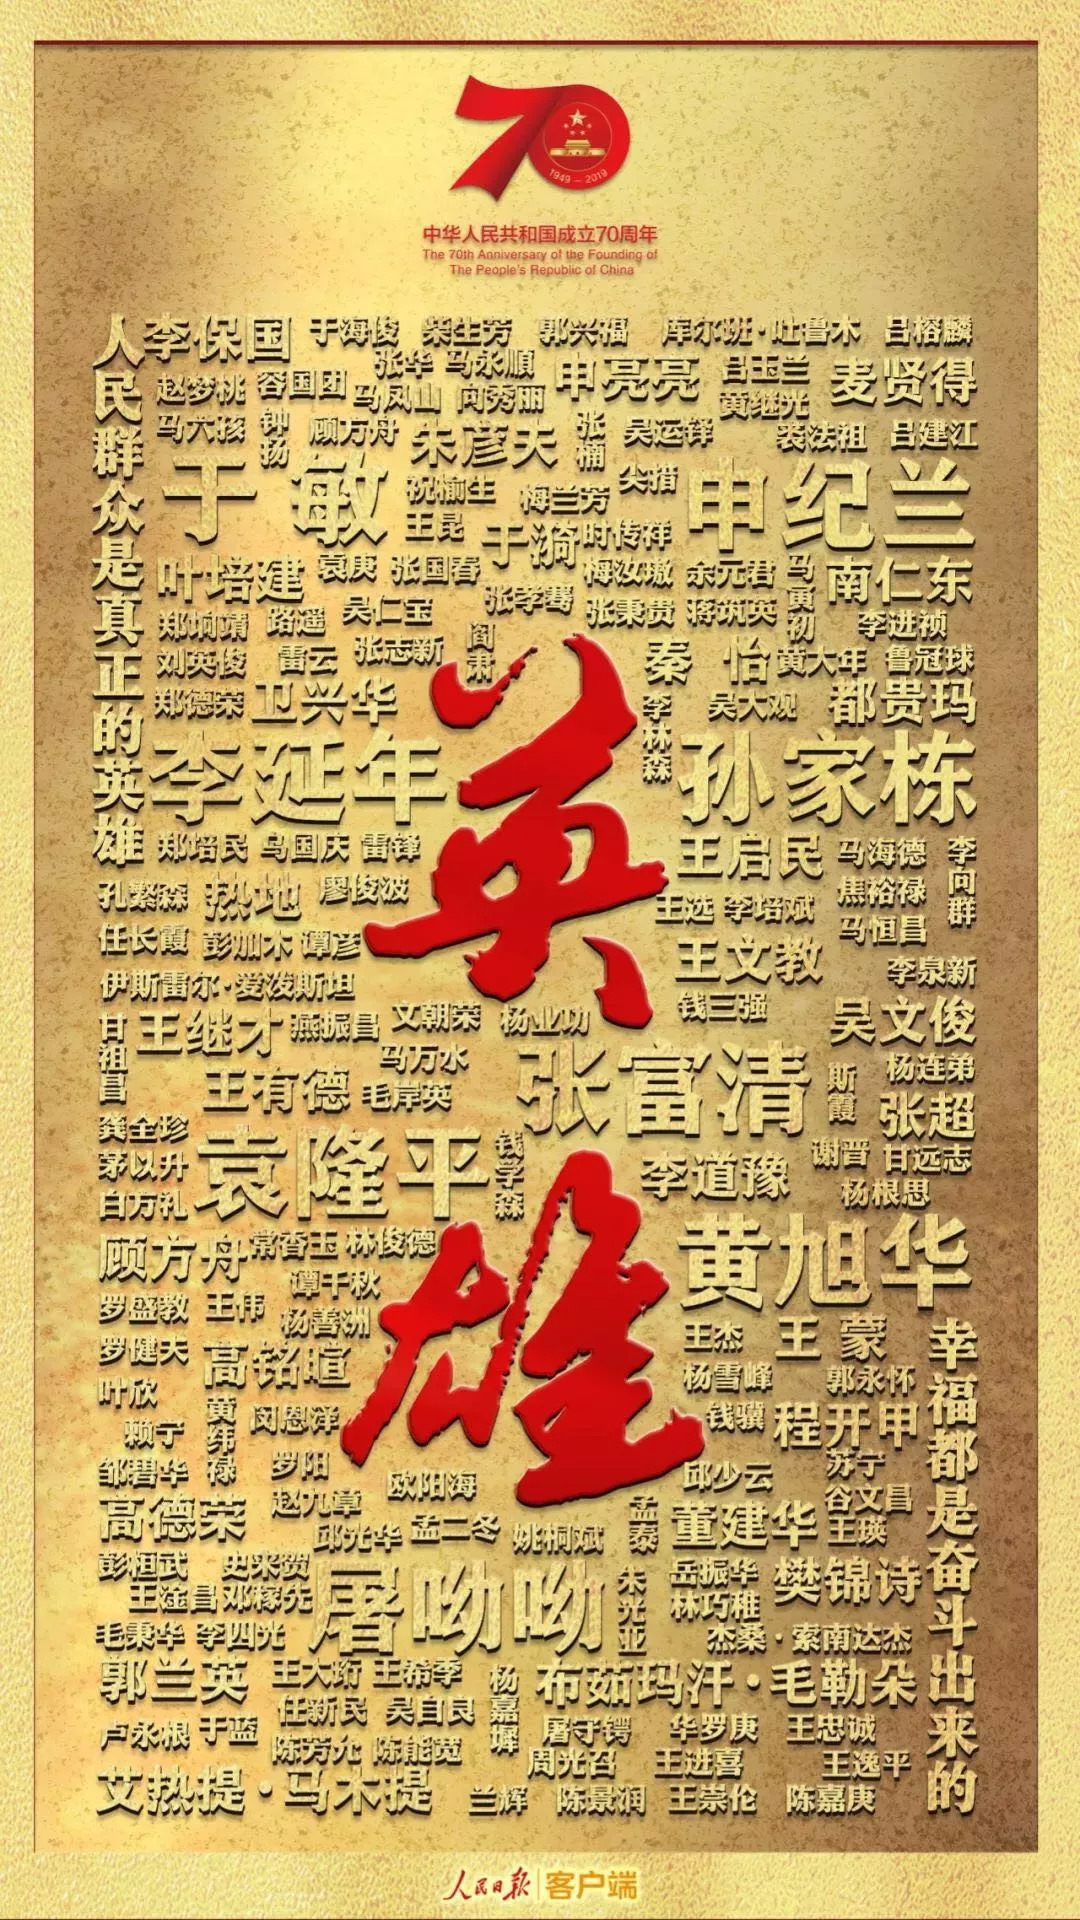 70
1949 – 2019
中华人民共和国成立70周年
The 70th Anniversary of the Founding of
The People's Republic of China
人民群众是真正的英雄
李保国 于海俊 柴生芳 郭兴福 库尔班·吐鲁木 吕榕麟
赵梦桃 容国团 张华 马永順 申亮亮 吕玉兰 麦贤得
马凤山 向秀丽 黄继光
马六孩 钟扬 顾方舟 朱彦夫 张楠 吴运铎 裘法祖 吕建江
于敏 祝榆生 梅兰芳 尖措 申纪兰
王昆 于漪 时传祥
叶培建 袁庚 张国春 梅汝璈 余元君 马勇初 南仁东
郑垧靖 路遥 吴仁宝 张孝骞 张秉贵 蒋筑英 李进祯
刘英俊 雷云 张志新 阎肃 秦怡 黄大年 鲁冠球
郑德荣 卫兴华 李林森 吴大观 都贵玛
李延年 英 孙家栋
郑培民 乌国庆 雷锋 王启民 马海德 李向群
孔繁森 热地 廖俊波 王选 李培斌 焦裕禄
任长霞 彭加木 谭彦 王文教 马恒昌
伊斯雷尔·爱泼斯坦 李泉新
甘祖昌 王继才 燕振昌 文朝荣 杨业功 钱三强 吴文俊
马万水 张富清 斯霞 杨连弟
王有德 毛岸英 张超
龚全珍 袁隆平 钱学森 李道豫 谢晋 甘远志
茅以升 杨根思
白方礼
顾方舟 常香玉 林俊德 黄旭华
谭千秋
罗盛教 王伟 杨善洲 雄 王杰 王蒙
罗健夫 高铭暄 杨雪峰 郭永怀
叶欣 黄纬禄 闵恩泽 钱骥 程开甲
赖宁 罗阳 苏宁
邹碧华 欧阳海 邱少云 谷文昌
高德荣 赵九章 邱光华 孟二冬 姚桐斌 孟泰 董建华 王瑛
彭桓武 史来贺 屠呦呦 朱光亚 岳振华 樊锦诗
王淦昌 邓稼先 林巧稚
毛秉华 李四光 杰桑·索南达杰
郭兰英 王大珩 王希季 杨嘉墀 布茹玛汗·毛勒朵
卢永根 于蓝 任新民 吴自良 屠守锷 华罗庚 王忠诚
陈芳允 陈能宽 周光召 王进喜 王逸平
艾热提·马木提 兰辉 陈景润 王崇伦 陈嘉庚
幸福都是奋斗出来的
人民日报 客户端